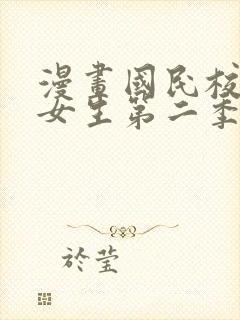 漫畫國民校
女生第二季
於瑩